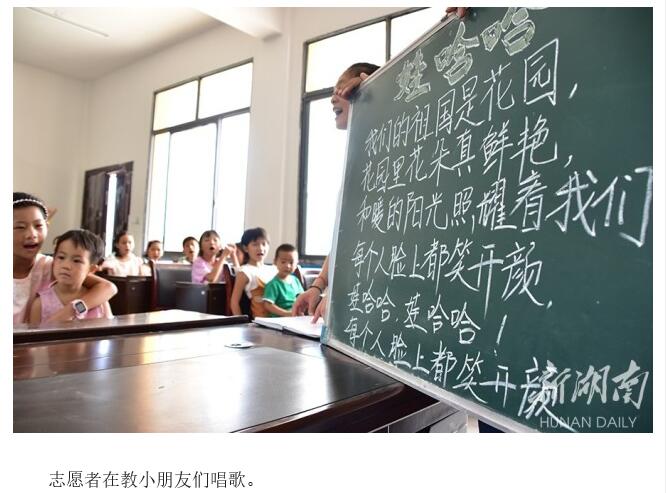 娃哈哈
我们的祖国是花园，
花园里花朵真鲜艳，
和暖的阳光照耀着我们
每个人脸上都笑开颜，
娃哈哈，娃哈哈！
每个人脸上都笑开颜
新湖南
HUNAN DAILY
志愿者在教小朋友们唱歌。